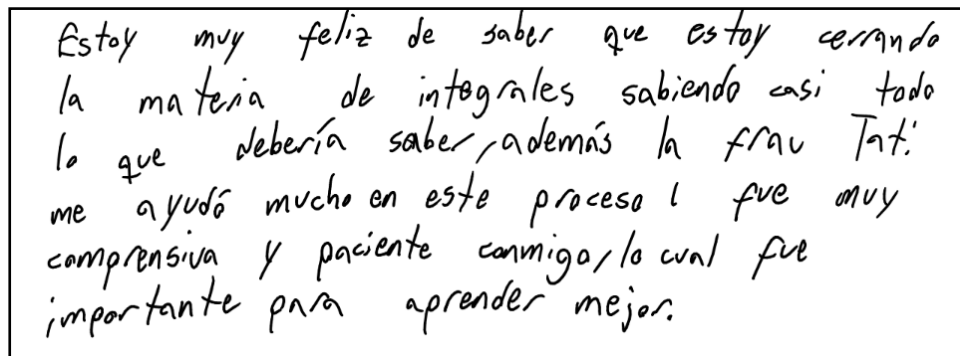 Estoy muy feliz de saber que estoy cerrando
la materia de integrales sabiendo casi todo
lo que debería saber, además la frau Tati
me ayudó mucho en este proceso l fue muy
comprensiva y paciente conmigo, lo cual fue
importante para aprender mejor.